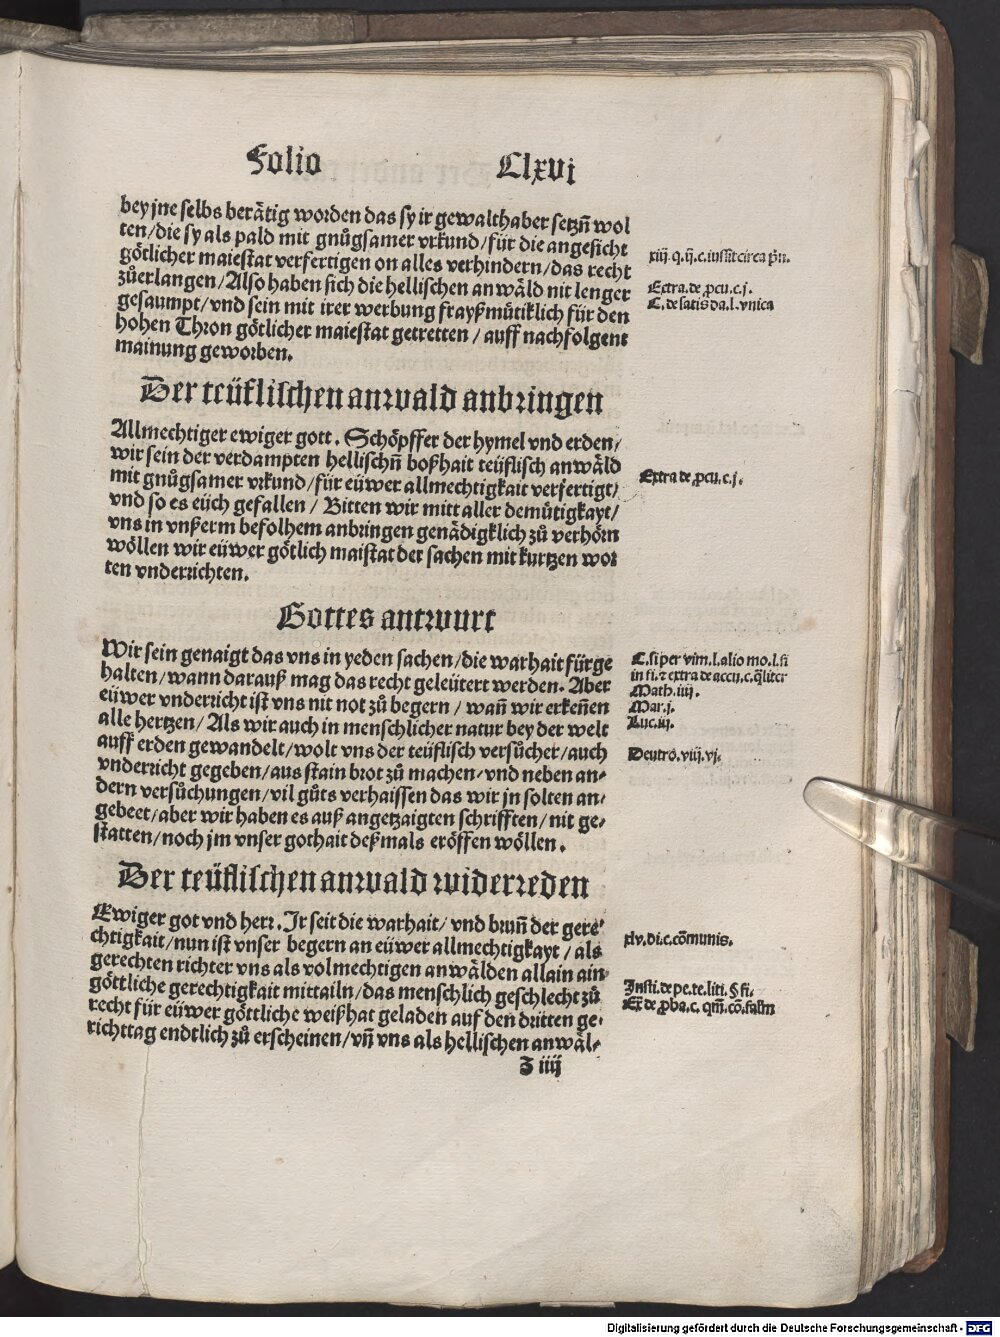 Folio Clxvi
bey jne selbs berätig worden das sy ir gewalthaber setzn̄ wol
ten/die sy als pald mit gnůgsamer vrkund/für die angesicht
götlicher maiestat verfertigen on alles verhindern/das recht
zůerlangen/Also haben sich die hellischen anwäld nit lenger
gesaumpt/vnd sein mit irer werbung frayßmütiklich für den
hohen Thron götlicher maiestat getretten/auff nachfolgent
mainung geworben.
xiij.q.ij.c.iussit circa prī.
Extra.de ꝓcu.c.j.
C.de satis da.l.vnica
Der teüflischen anwald anbringen
Allmechtiger ewiger gott. Schöpffer der hymel vnd erden/
wir sein der verdampten hellischn̄ boßhait teüflisch anwäld
mit gnůgsamer vrkund/für eüwer allmechtigkait verfertigt/
vnd so es eüch gefallen/Bitten wir mitt aller demütigkayt/
vns in vnßerm befolhem anbringen genädigklich zů verhörn
wöllen wir eüwer götlich maistat der sachen mit kurtzen wor
ten vnderrichten.
Extra de ꝓcu.c.j.
Gottes antwurt
Wir sein genaigt das vns in yeden sachen/die warhait fürge
halten/wann darauß mag das recht geleütert werden. Aber
eüwer vnderricht ist vns nit not zů begern/wañ wir erkeñen
alle hertzen/Als wir auch in menschlicher natur bey der welt
auff erden gewandelt/wolt vns der teüflisch versůcher/auch
vnderricht gegeben/aus stain brot zů machen/vnd neben an-
dern versůchungen/vil gůts verhaissen das wir jn solten an-
gebeet/aber wir haben es auß angetzaigten schrifften/nit ge-
statten/noch jm vnser gothait deßmals eröffen wöllen.
C.si per vim.l.alio mo.l.si
in fi.⁊ extra de accu.c.q̄liter
Math.iiij.
Mar.j.
Luc.iij.
Deutro.viij.vj.
Der teüflischen anwald widerreden
Ewiger got vnd herr. Ir seit die warhait/vnd brun̄ der gere-
chtigkait/nun ist vnser begern an eüwer allmechtigkayt/als
gerechten richter vns als volmechtigen anwälden allain ain
göttliche gerechtigkait mittailn/das menschlich geschlecht zů
recht für eüwer göttliche weißhat geladen auf den dritten ge-
richttag endtlich zů erscheinen/vn̄ vns als hellischen anwäl-
xlv.di.c.cōmunis.
Insti.de pe.te.liti.§ fi.
Ex̄ de ꝓba.c. qm̄.cō.falsm
Z iiij
Digitalisierung gefördert durch die Deutsche Forschungsgemeinschaft - DFG